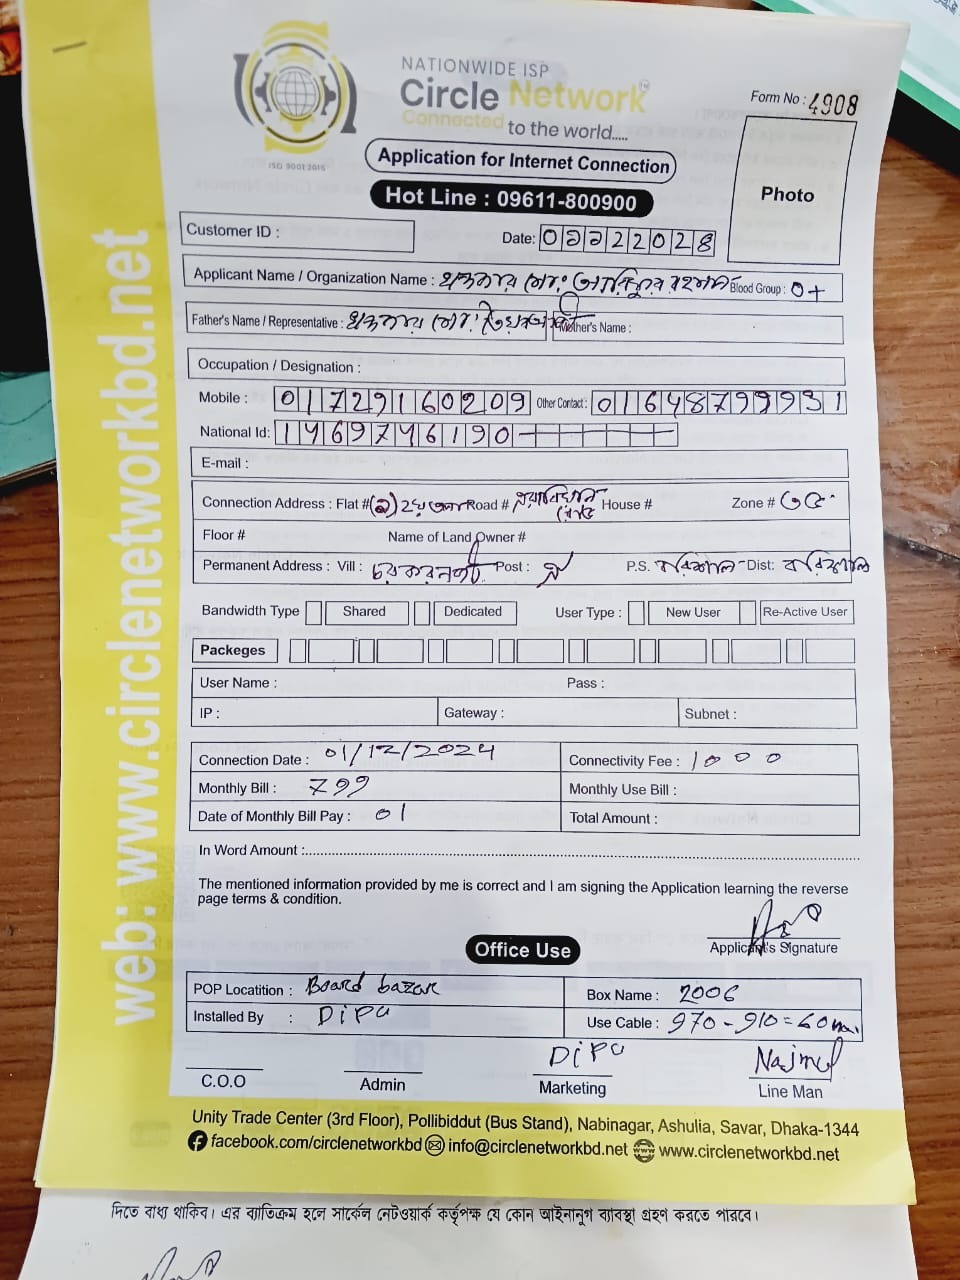 web: www.circlenetworkbd.net
NATIONWIDE ISP
Circle Network
Connected to the world.....
ISO 9001:2015
Form No : 4908
Application for Internet Connection
Hot Line : 09611-800900
Photo
Customer ID :
Date:
Applicant Name / Organization Name : খন্দকার মো: রহমান Blood Group : O+
Father's Name / Representative : খন্দকার মো: Mother's Name :
Occupation / Designation :
Mobile : 01729160209 Other Contact : 01648799931
National Id: 1469746190
E-mail :
Connection Address : Flat # Road # House # Zone #
Floor # Name of Land Owner #
Permanent Address : Vill : Post : ঐ P.S. বরিশাল Dist: বরিশাল
Bandwidth Type Shared Dedicated User Type : New User Re-Active User
Packeges
User Name : Pass :
IP : Gateway : Subnet :
Connection Date : 01/12/2024 Connectivity Fee : 1000
Monthly Bill : 799 Monthly Use Bill :
Date of Monthly Bill Pay : 01 Total Amount :
In Word Amount :
The mentioned information provided by me is correct and I am signing the Application learning the reverse
page terms & condition.
Applicant's Signature
Office Use
POP Locatition : Board bazar Box Name : 2006
Installed By : Dipu Use Cable : 970-910=60
Dipu Najmul
C.O.O Admin Marketing Line Man
Unity Trade Center (3rd Floor), Pollibiddut (Bus Stand), Nabinagar, Ashulia, Savar, Dhaka-1344
facebook.com/circlenetworkbd info@circlenetworkbd.net www.circlenetworkbd.net
দিতে বাধ্য থাকিব। এর ব্যাতিক্রম হলে সার্কেল নেটওয়ার্ক কর্তৃপক্ষ যে কোন আইনানুগ ব্যাবস্থা গ্রহণ করতে পারবে।